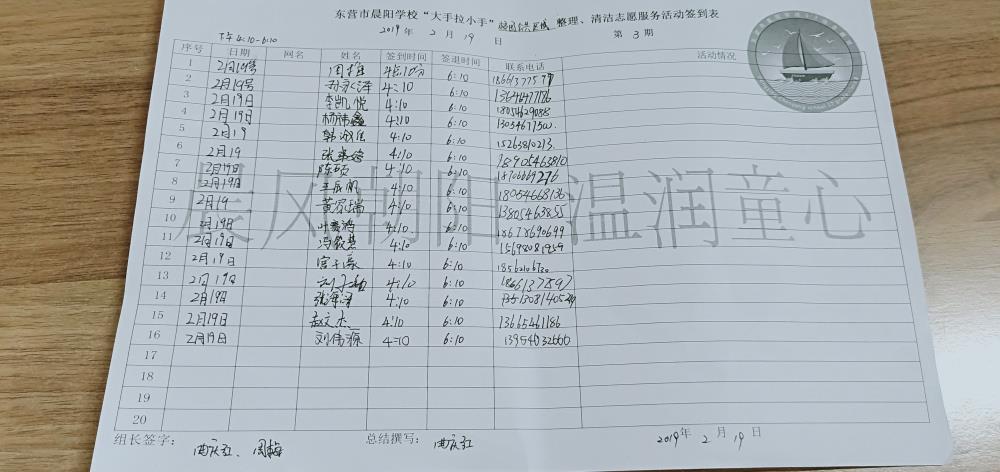 东营市晨阳学校“大手拉小手”校园公共区域 整理、清洁志愿服务活动签到表
下午4:10-6:10 2019年 2月 19日 第 3 期
序号 日期 网名 姓名 签到时间 签退时间 联系电话 活动情况
1 2月19号 周梅 4点10分 6:10
2 2月19号 孙永泽 4:10 6:10 13646477186
3 2月19日 李凯悦 4:10 6:10 18054629088
4 2月19日 杨沛鑫 4:10 6:10
5 2月19 韩淑佳 4:10 6:10 15263810213
6 2月19 4:10 6:10 18905463810
7 2月19日 陈硕 4:10 6:10 18706669276
8 2月19日 4:10 6:10 18054668136
9 2月19 4:10 6:10 13805463855
10 2月19日 4:10 6:10 18678690699
11 2月19日 4:10 6:10 15698081959
12 2月19日 4:10 6:10 18562106730
13 2月19日 4:10 6:10 18661375897
14 2月19日 4:10 6:10
15 2月19日 赵文杰 4:10 6:10 13665461186
16 2月19日 刘伟源 4:10 6:10 13954032600
17
18
19
20
晨风朝阳 温润童心
组长签字： 曲庆红、周梅 总结撰写： 曲庆红 2019年 2月 19日